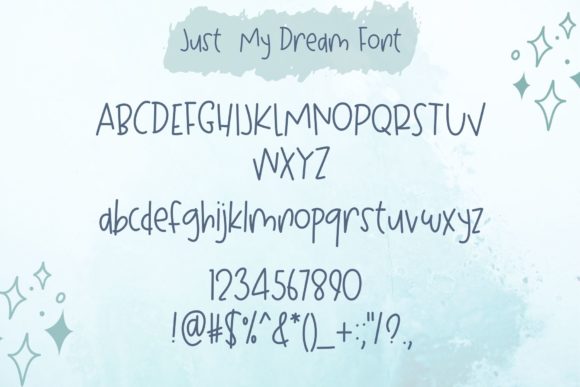 Just My Dream Font
ABCDEFGHIJKLMNOPQRSTUV
WXYZ
abcdefghijklmnopqrstuvwxyz
1234567890
!@#$%^&*()_+:;"/?.,